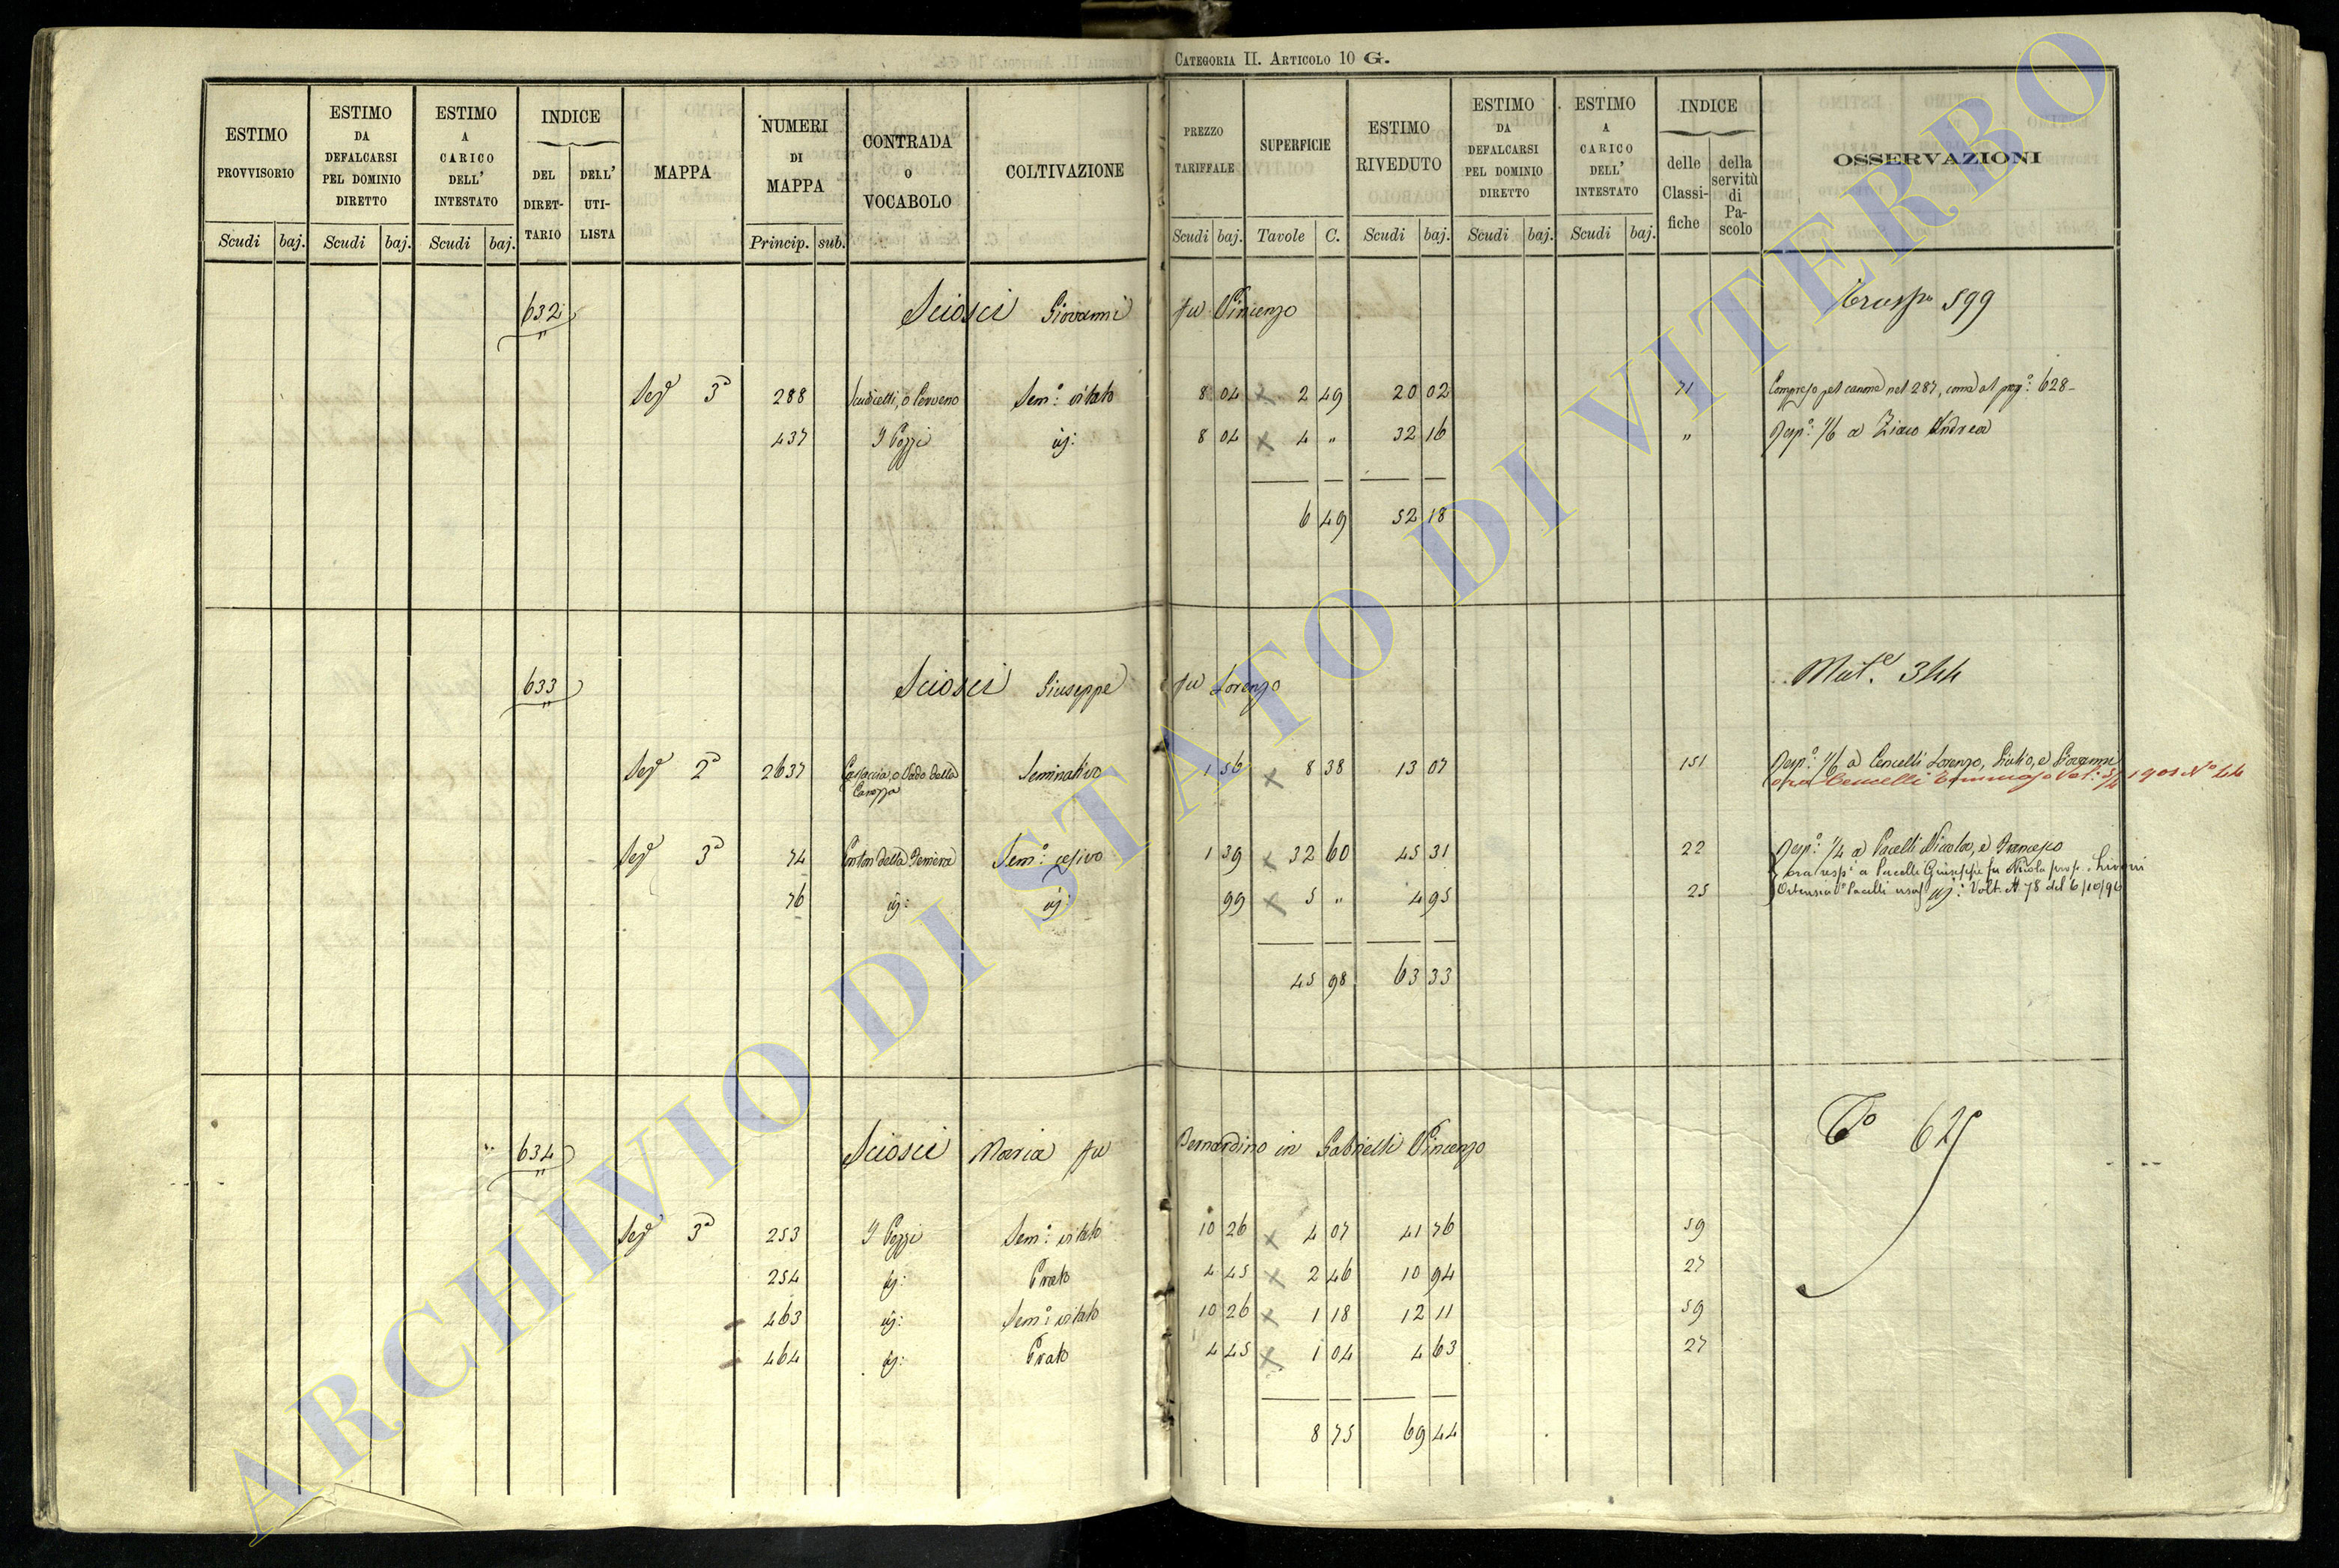 CATEGORIA II. ARTICOLO 10 G.
ESTIMO PROVVISORIO Scudi baj.
ESTIMO DA DEFALCARSI PEL DOMINIO DIRETTO Scudi baj.
ESTIMO A CARICO DELL' INTESTATO Scudi baj.
INDICE DEL DIRET-TARIO DELL' UTI-LISTA
MAPPA
NUMERI DI MAPPA Princip. sub.
CONTRADA O VOCABOLO
COLTIVAZIONE
PREZZO TARIFFALE Scudi baj.
SUPERFICIE Tavole C.
ESTIMO RIVEDUTO Scudi baj.
ESTIMO DA DEFALCARSI PEL DOMINIO DIRETTO Scudi baj.
ESTIMO A CARICO DELL' INTESTATO Scudi baj.
INDICE delle Classi-fiche della servitù di Pa-scolo
OSSERVAZIONI
632 Sciosci Giovanni fu Vincenzo 599
Sez 3a 288 Sem: vitato 8 04 2 49 20 02 71 628
437 I Pozzi id: 8 04 4 " 32 16 " Resp: 1/6 a Andrea
6 49 52 18
633 Sciosci Giuseppe fu Lorenzo Mut. 344
Sez 2a 2637 Casaccia, o Vado della Carozza Seminativo 1 56 8 38 13 07 151 Resp: 1/6 a Cencelli Lorenzo, Giulio, e Giovanni
ora Cencelli Tommaso Vol: 1901 No 44
Sez 3a 74 Sem: 1 39 32 60 45 31 22 Resp: 1/4 a Pacelli Niccola, e Francesco
ora resp: a Pacelli Giuseppe fu Nicola
76 id: id: 99 5 " 4 95 25 Pacelli Volt. N 78 del 6/10/96
45 98 63 33
634 Sciosci Maria fu Bernardino in Gabrielli Vincenzo 625
Sez 3a 253 I Pozzi Sem: vitato 10 26 4 07 41 76 59
254 id: Prato 4 45 2 46 10 94 27
463 id: Sem: vitato 10 26 1 18 12 11 59
464 id: Prato 4 45 1 04 4 63 27
8 75 69 44
ARCHIVIO DI STATO DI VITERBO